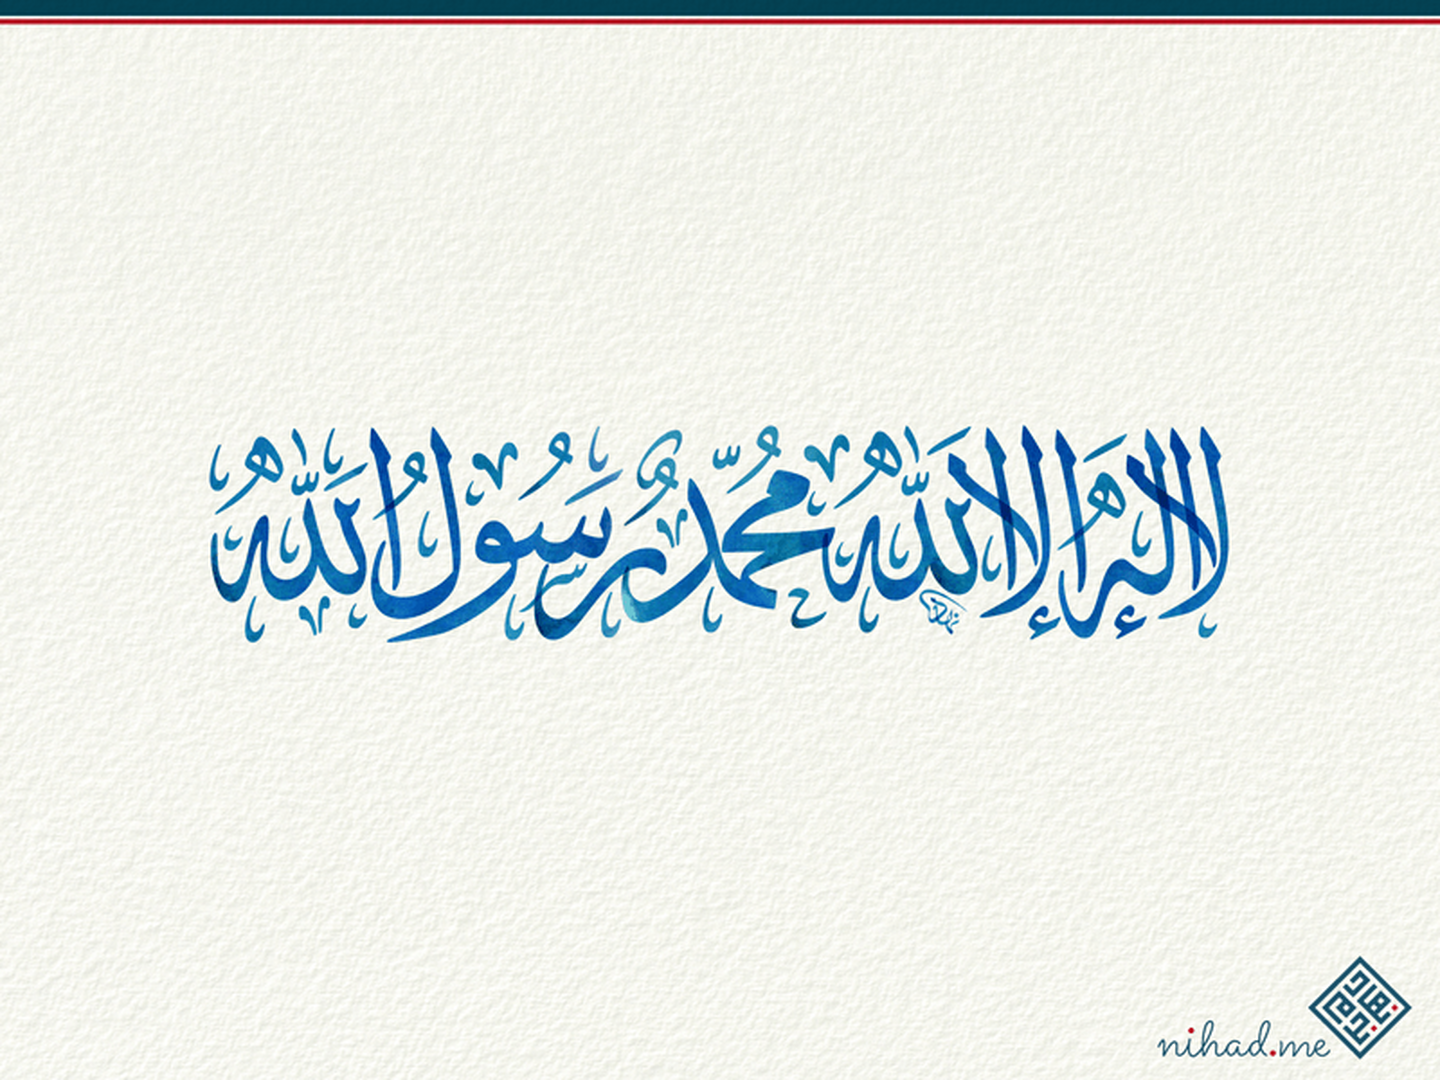 لا إله إلا الله محمد رسول الله
nihad.me